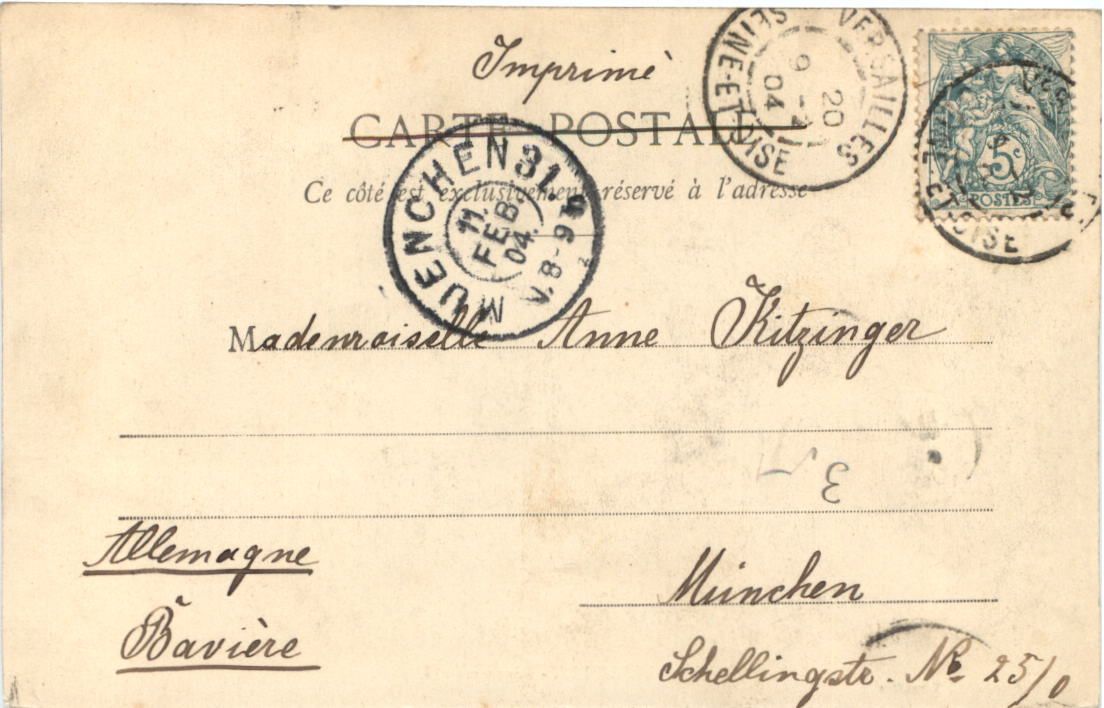 Imprimé
CARTE POSTALE
Ce côté est exclusivement réservé à l'adresse
VERSAILLES
SEINE-ET-OISE
20
9 -2
04
5c
POSTES
MUENCHEN 31.
11.
FEB
04.
V.8-9
Mademoiselle Anne Kitzinger
3
Allemagne
Bavière
München
Schellingstr. No 25/0